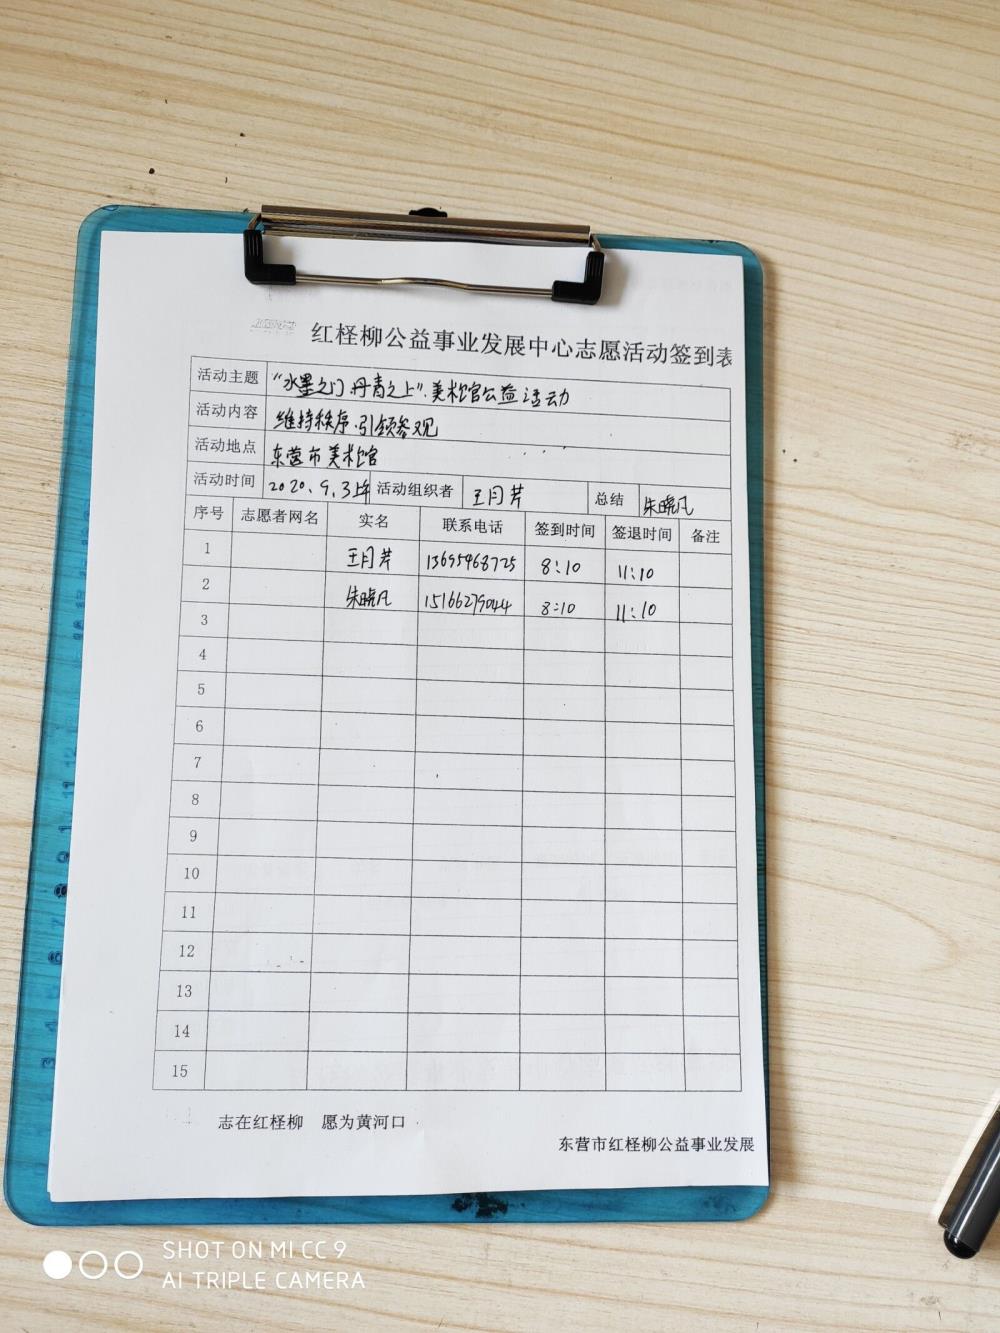 红柽柳公益事业发展中心志愿活动签到表
活动主题 “水墨之门.丹青之上”.美术馆公益活动
活动内容 维持秩序.引领参观
活动地点 东营市美术馆
活动时间 2020.9.3上午 活动组织者 王月芹 总结 朱晓凡
序号 志愿者网名 实名 联系电话 签到时间 签退时间 备注
1 王月芹 13695468725 8:10 11:10
2 朱晓凡 15166279044 8:10 11:10
3
4
5
6
7
8
9
10
11
12
13
14
15
志在红柽柳 愿为黄河口
东营市红柽柳公益事业发展
SHOT ON MI CC 9
AI TRIPLE CAMERA